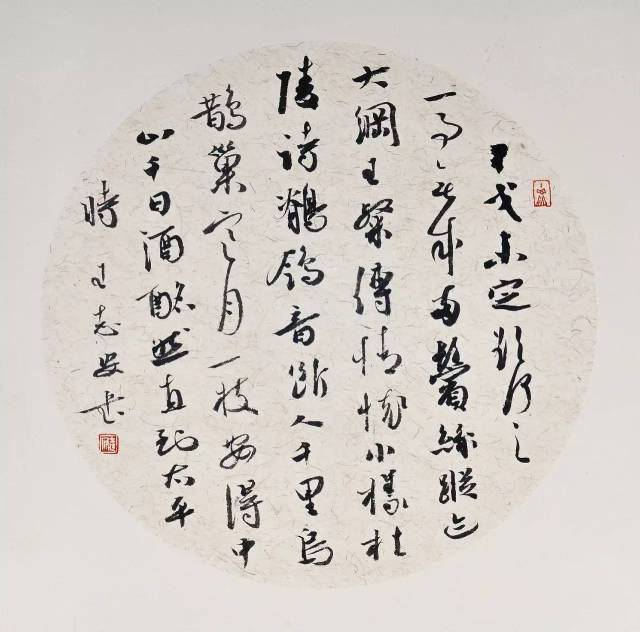 干戈未定欲何之
一事无成两鬓丝踪迹
大纲王粲传情怀小样杜
陵诗鹡鸰音断人千里乌
鹊巢寒月一枝安得中
山千日酒酩然直到太平
时 王志安书